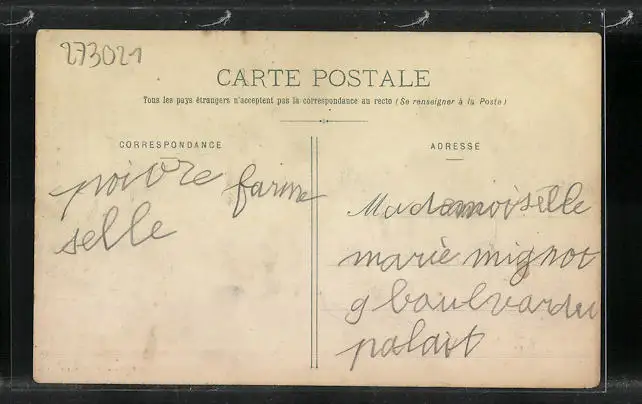 273021
CARTE POSTALE
Tous les pays étrangers n'acceptent pas la correspondance au recto (Se renseigner à la Poste)
CORRESPONDANCE
poivre farine
selle
ADRESSE
Mademoiselle
marie mignot
9 boulvardu
palait